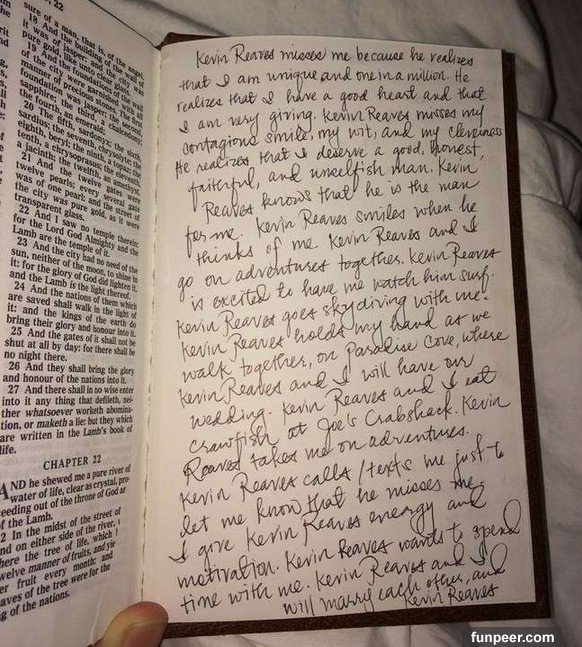 22
sure of a man, that is, of the angel.
18 And the building of the wall of
it was of jasper: and the city was
pure gold, like unto clear glass.
19 And the foundations of the wall
of the city were garnished with all
manner of precious stones. The first
foundation was jasper; the second,
sapphire; the third, a chalcedony;
the fourth, an emerald;
20 The fifth, sardonyx; the sixth,
sardius; the seventh, chrysolyte; the
eighth, beryl; the ninth, a topaz; the
tenth, a chrysoprasus; the eleventh,
a jacinth; the twelfth, an amethyst.
21 And the twelve gates were
twelve pearls; every several gate
was of one pearl: and the street of
the city was pure gold, as it were
transparent glass.
22 And I saw no temple therein:
for the Lord God Almighty and the
Lamb are the temple of it.
23 And the city had no need of the
sun, neither of the moon, to shine in
it: for the glory of God did lighten it,
and the Lamb is the light thereof.
24 And the nations of them which
are saved shall walk in the light of
it: and the kings of the earth do
bring their glory and honour into it.
25 And the gates of it shall not be
shut at all by day: for there shall be
no night there.
26 And they shall bring the glory
and honour of the nations into it.
27 And there shall in no wise enter
into it any thing that defileth, nei-
ther whatsoever worketh abomina-
tion, or maketh a lie: but they which
are written in the Lamb's book of
life.
CHAPTER 22
AND he shewed me a pure river of
water of life, clear as crystal, pro-
ceeding out of the throne of God and
of the Lamb.
2 In the midst of the street of
and on either side of the river,
here the tree of life, which
welve manner of fruits, and yie
er fruit every month: and
aves of the tree were for the
g of the nations.
Kevin Reaves misses me because he realizes
that I am unique and one in a million. He
realizes that I have a good heart and that
I am very giving. Kevin Reaves misses my
contagious smile, my wit, and my cleverness
He realizes that I deserve a good, honest,
faithful, and unselfish man. Kevin
Reaves knows that he is the man
for me. Kevin Reaves smiles when he
thinks of me. Kevin Reaves and I
go on adventures together. Kevin Reaves
is excited to have me watch him surf.
Kevin Reaves goes skydiving with me.
Kevin Reaves holds my hand as we
walk together, on Paradise Cove, where
Kevin Reaves and I will have our
wedding. Kevin Reaves and I eat
crawfish at Joe's Crabshack. Kevin
Reaves takes me on adventures.
Kevin Reaves calls/texts me just to
let me know that he misses me.
I give Kevin Reaves energy and
motivation. Kevin Reaves wants to spend
time with me. Kevin Reaves and I
will marry each other, and
Kevin Reaves
funpeer.com